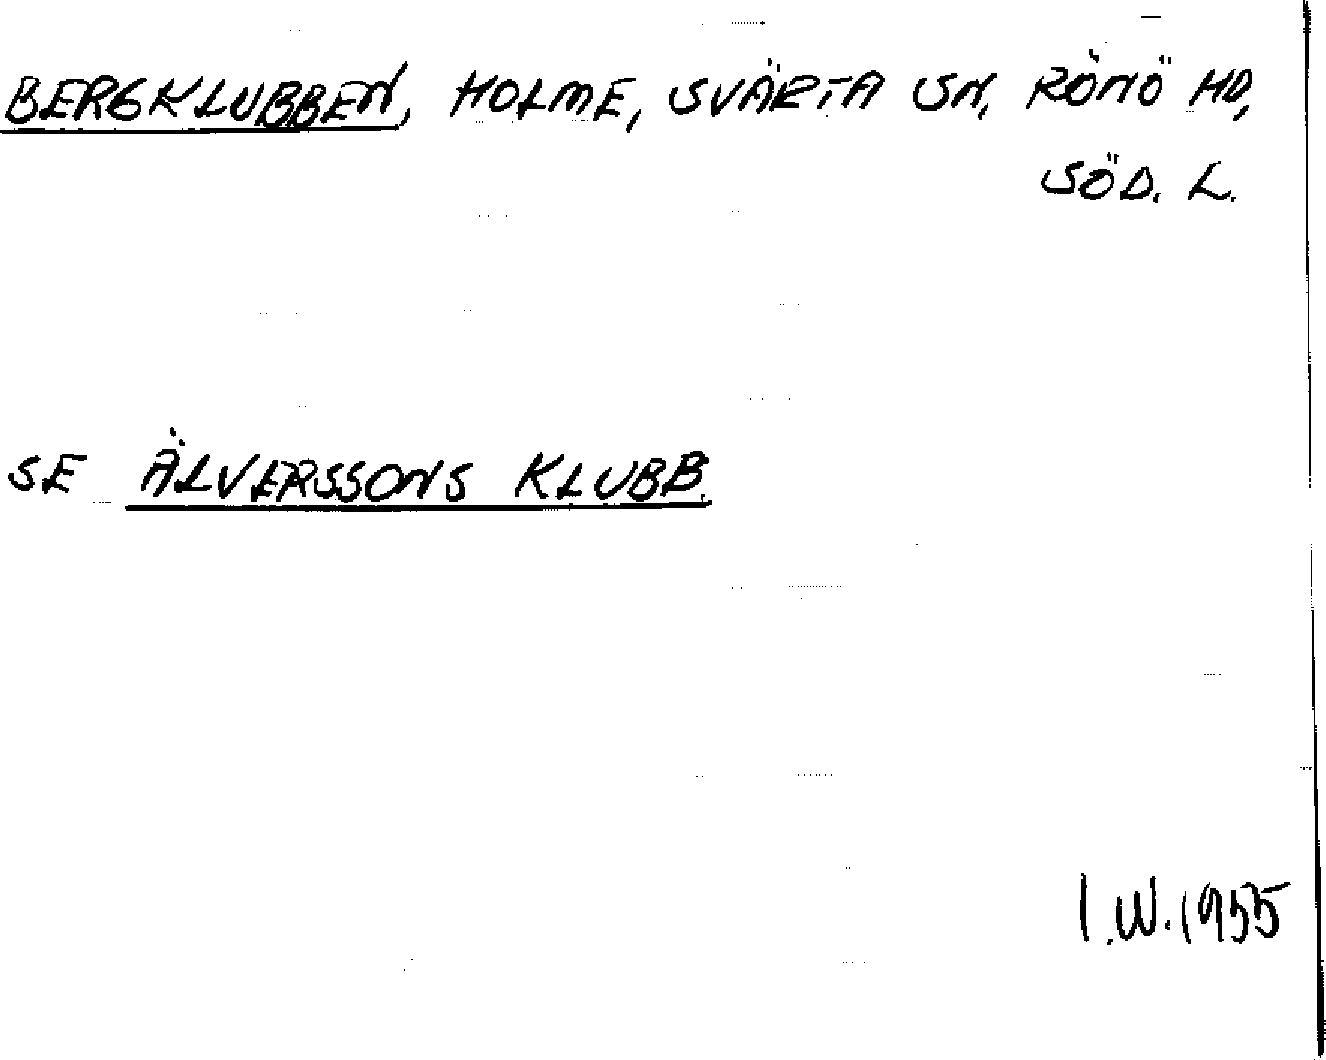 BERGKLUBBEN, HOLME, SVÄRTA SN, RÖNÖ HD,
SÖD. L.
SE ÄLVERSSONS KLUBB.
I.W. 1955